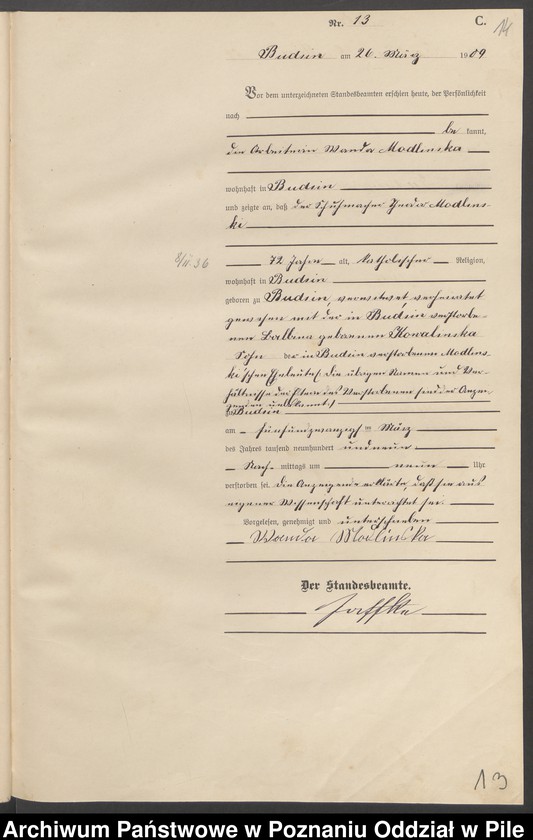 Nr. 13 C. 14
Budsin am 26. März 1909
Vor dem unterzeichneten Standesbeamten erschien heute, der Persönlichkeit
nach
be kannt,
die Arbeiterin Wanda Modlinska
wohnhaft in Budsin
und zeigte an, daß der Schuhmacher Modlins-
ki
8/II. 36
72 Jahre alt, katholischer Religion,
wohnhaft in Budsin
geboren zu Budsin, verwitwet, verheiratet
gewesen mit der in Budsin verstorbe-
nen Balbina geborenen Kowalinska
Sohn der in Budsin verstorbenen Modlins-
ki'schen Eheleute /: die übrigen Namen und Ver-
hältnisse der Eltern des Verstorbenen sind der Anzei-
genden unbekannt :/
zu Budsin
am fünfundzwanzigsten März
des Jahres tausend neunhundert und neun
Nach- mittags um neun Uhr
verstorben sei. Die Anzeigende erklärte, daß sie aus
eigener Wissenschaft unterrichtet sei.
Vorgelesen, genehmigt und unterschrieben
Wanda Modlinska
Der Standesbeamte.
Jaffke
13
Archiwum Państwowe w Poznaniu Oddział w Pile